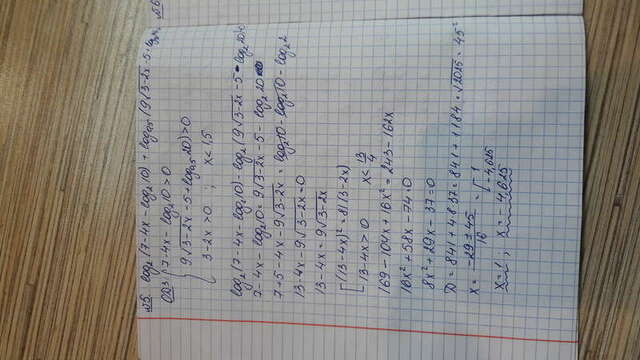 №5. log₂(7-4x-log₂10) + log₀,₅(9√3-2x -5+log₀,₅
№6
ОДЗ: { 7-4x-log₂10>0
9√3-2x -5+log₀,₅20)>0
3-2x>0 ; x<1,5
log₂(7-4x-log₂10)-log₂(9√3-2x -5-log₂20)
7-4x-log₂10=9√3-2x -5-log₂20
7+5-4x-9√3-2x=log₂10-log₂10-log₂2
13-4x-9√3-2x=0
13-4x=9√3-2x
[(13-4x)²=81(3-2x)
13-4x>0 x<13/4
169-104x+16x²=243-162x
16x²+58x-74=0
8x²+29x-37=0
D=841+4·8·37=841+1184=√2025=45²
x=(-29±45)/16=[1
-4,625
x=1 ; x=-4,625